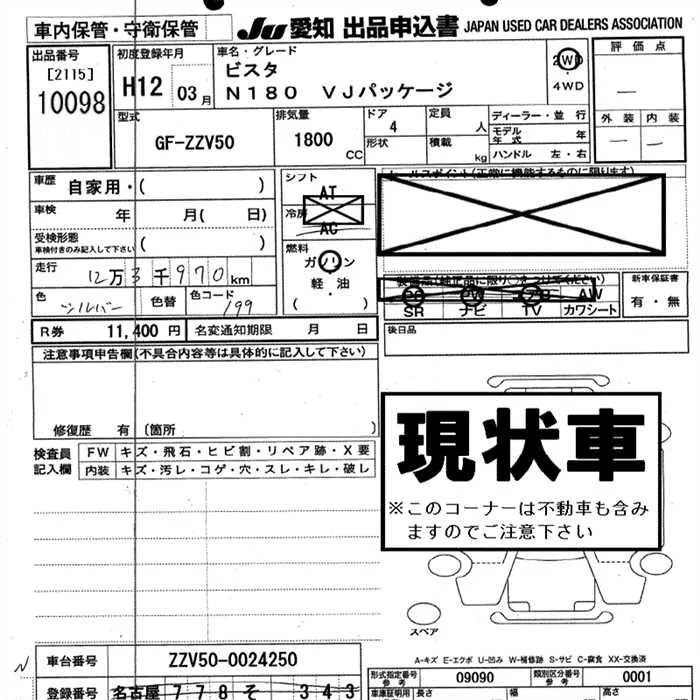 車内保管・守衛保管
JU 愛知 出品申込書 JAPAN USED CAR DEALERS ASSOCIATION
出品番号
[2115]
10098
初度登録年月
H12 03月
車名・グレード
ビスタ
N180 VJパッケージ
2WD
・
4WD
評価点
—
外装 内装
— —
型式
GF-ZZV50
排気量
1800 CC
ドア
4
定員
人
形状
積載
kg
ディーラー・並 行
モデル年式 年
ハンドル 左・右
車歴 自家用・( )
車検 年 月( 日)
受検形態
車検付きのみ記入して下さい ( )
走行 12万3千970km
色 シルバー 色替 色コード 199
シフト
AT
冷房
AC
燃料
ガソリン
軽・油
( )
セールスポイント(正常に機能するものに限ります)
装備品(純正品に限り○をつけてください)
AW
SR ナビ TV カワシート
新車保証書
有・無
後日品
R券 11,400 円 名変通知期限 月 日
注意事項申告欄(不具合内容等は具体的に記入して下さい)
修復歴 有 (箇所 )
検査員記入欄
FW キズ・飛石・ヒビ割・リペア跡・X要
内装 キズ・汚レ・コゲ・穴・スレ・キレ・破レ
現状車
※このコーナーは不動車も含み
ますのでご注意下さい
スペア
A-キズ E-エクボ U-凹み W-補修跡 S-サビ C-腐食 XX-交換済
N
車台番号 ZZV50-0024250
登録番号 名古屋 778 そ 343
形式指定番号 参考 09090 類別区分番号 参考 0001
車庫証明用 長さ 幅 高さ